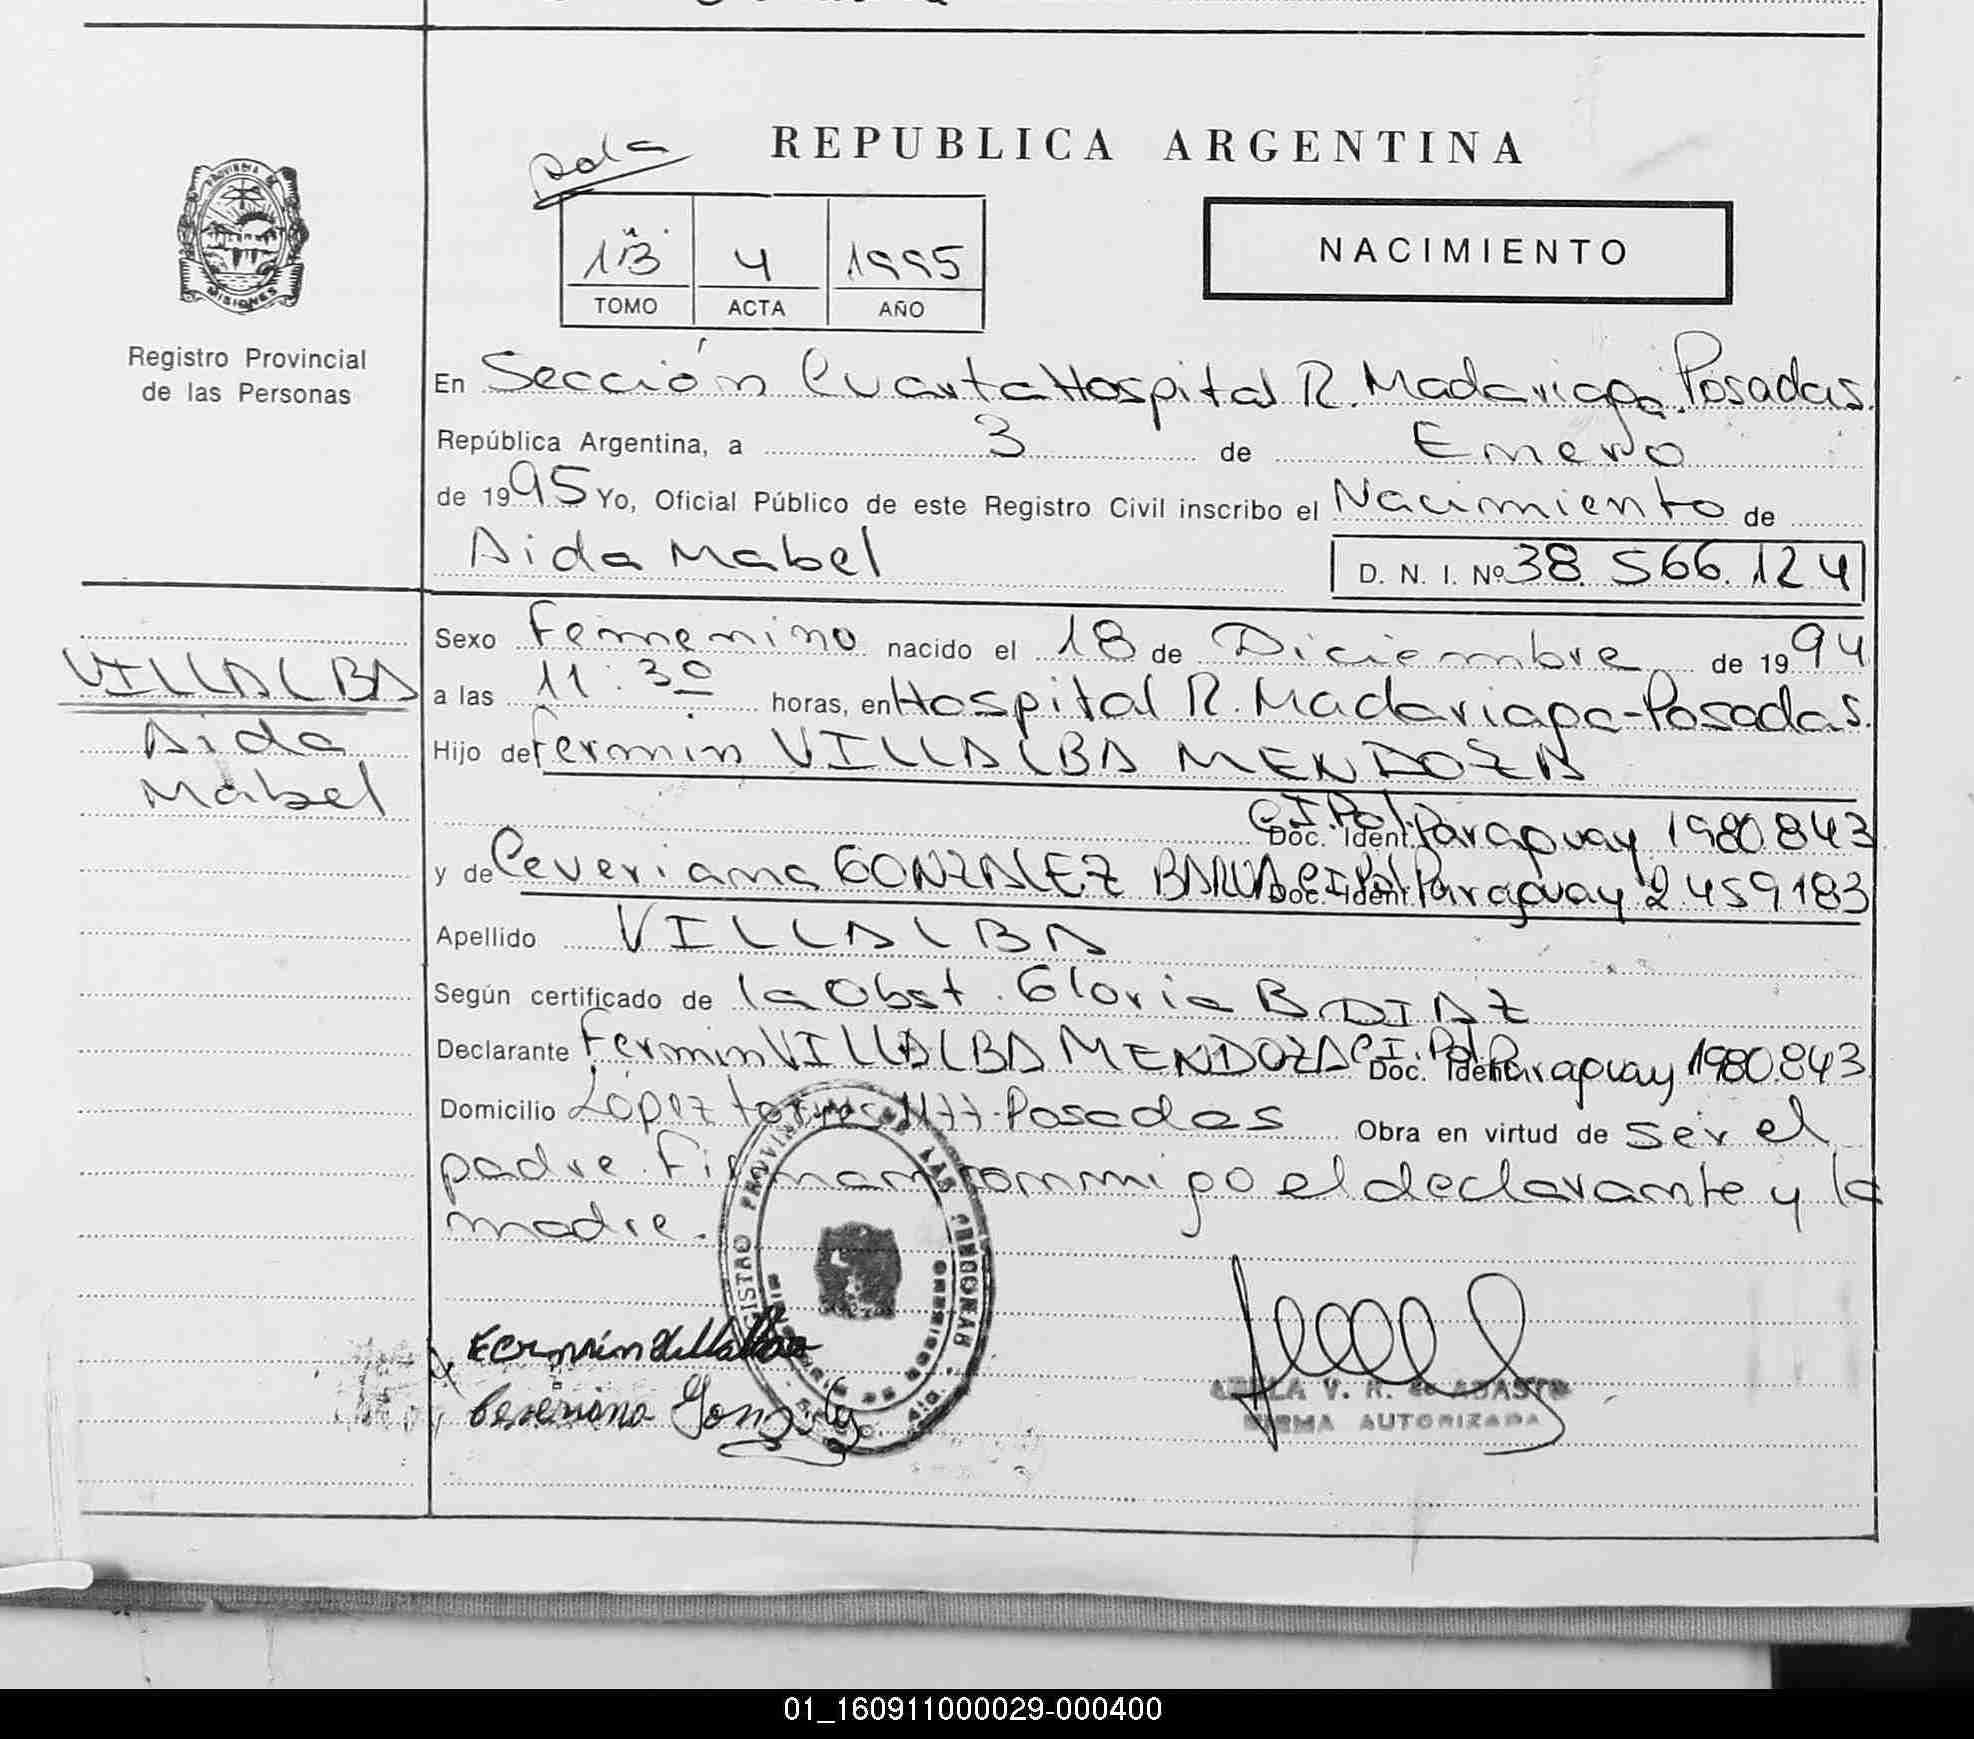 REPUBLICA ARGENTINA
PROVINCIA
MISIONES
Registro Provincial
de las Personas
1B 4 1995
TOMO ACTA AÑO
NACIMIENTO
En Sección Cuarta Hospital R. Madariaga. Posadas.
República Argentina, a 3 de Enero
de 1995 Yo, Oficial Público de este Registro Civil inscribo el Nacimiento de
Aida Mabel D. N. I. Nº 38.566.124
VILLALBA
Aida
Mabel
Sexo Femenino nacido el 18 de Diciembre de 1994
a las 11:30 horas, en Hospital R. Madariaga-Posadas.
Hijo de Fermin VILLALBA MENDOZA
Doc. Ident. C.I.Pol. Paraguay 1980.843
y de Ceveriana GONZALEZ BARUA Doc. Ident. C.I.Pol. Paraguay 2.459.183
Apellido VILLALBA
Según certificado de la Obst. Gloria B DIAZ
Declarante Fermin VILLALBA MENDOZA Doc. Ident. C.I.Pol. Paraguay 1980.843
Domicilio López torres Posadas Obra en virtud de ser el
padre. Firman conmigo el declarante y la
madre.
REGISTRO PROVINCIAL DE LAS PERSONAS
Fermin Villalba
Ceveriana Gonzalez
V. R. de
FIRMA AUTORIZADA
01_160911000029-000400